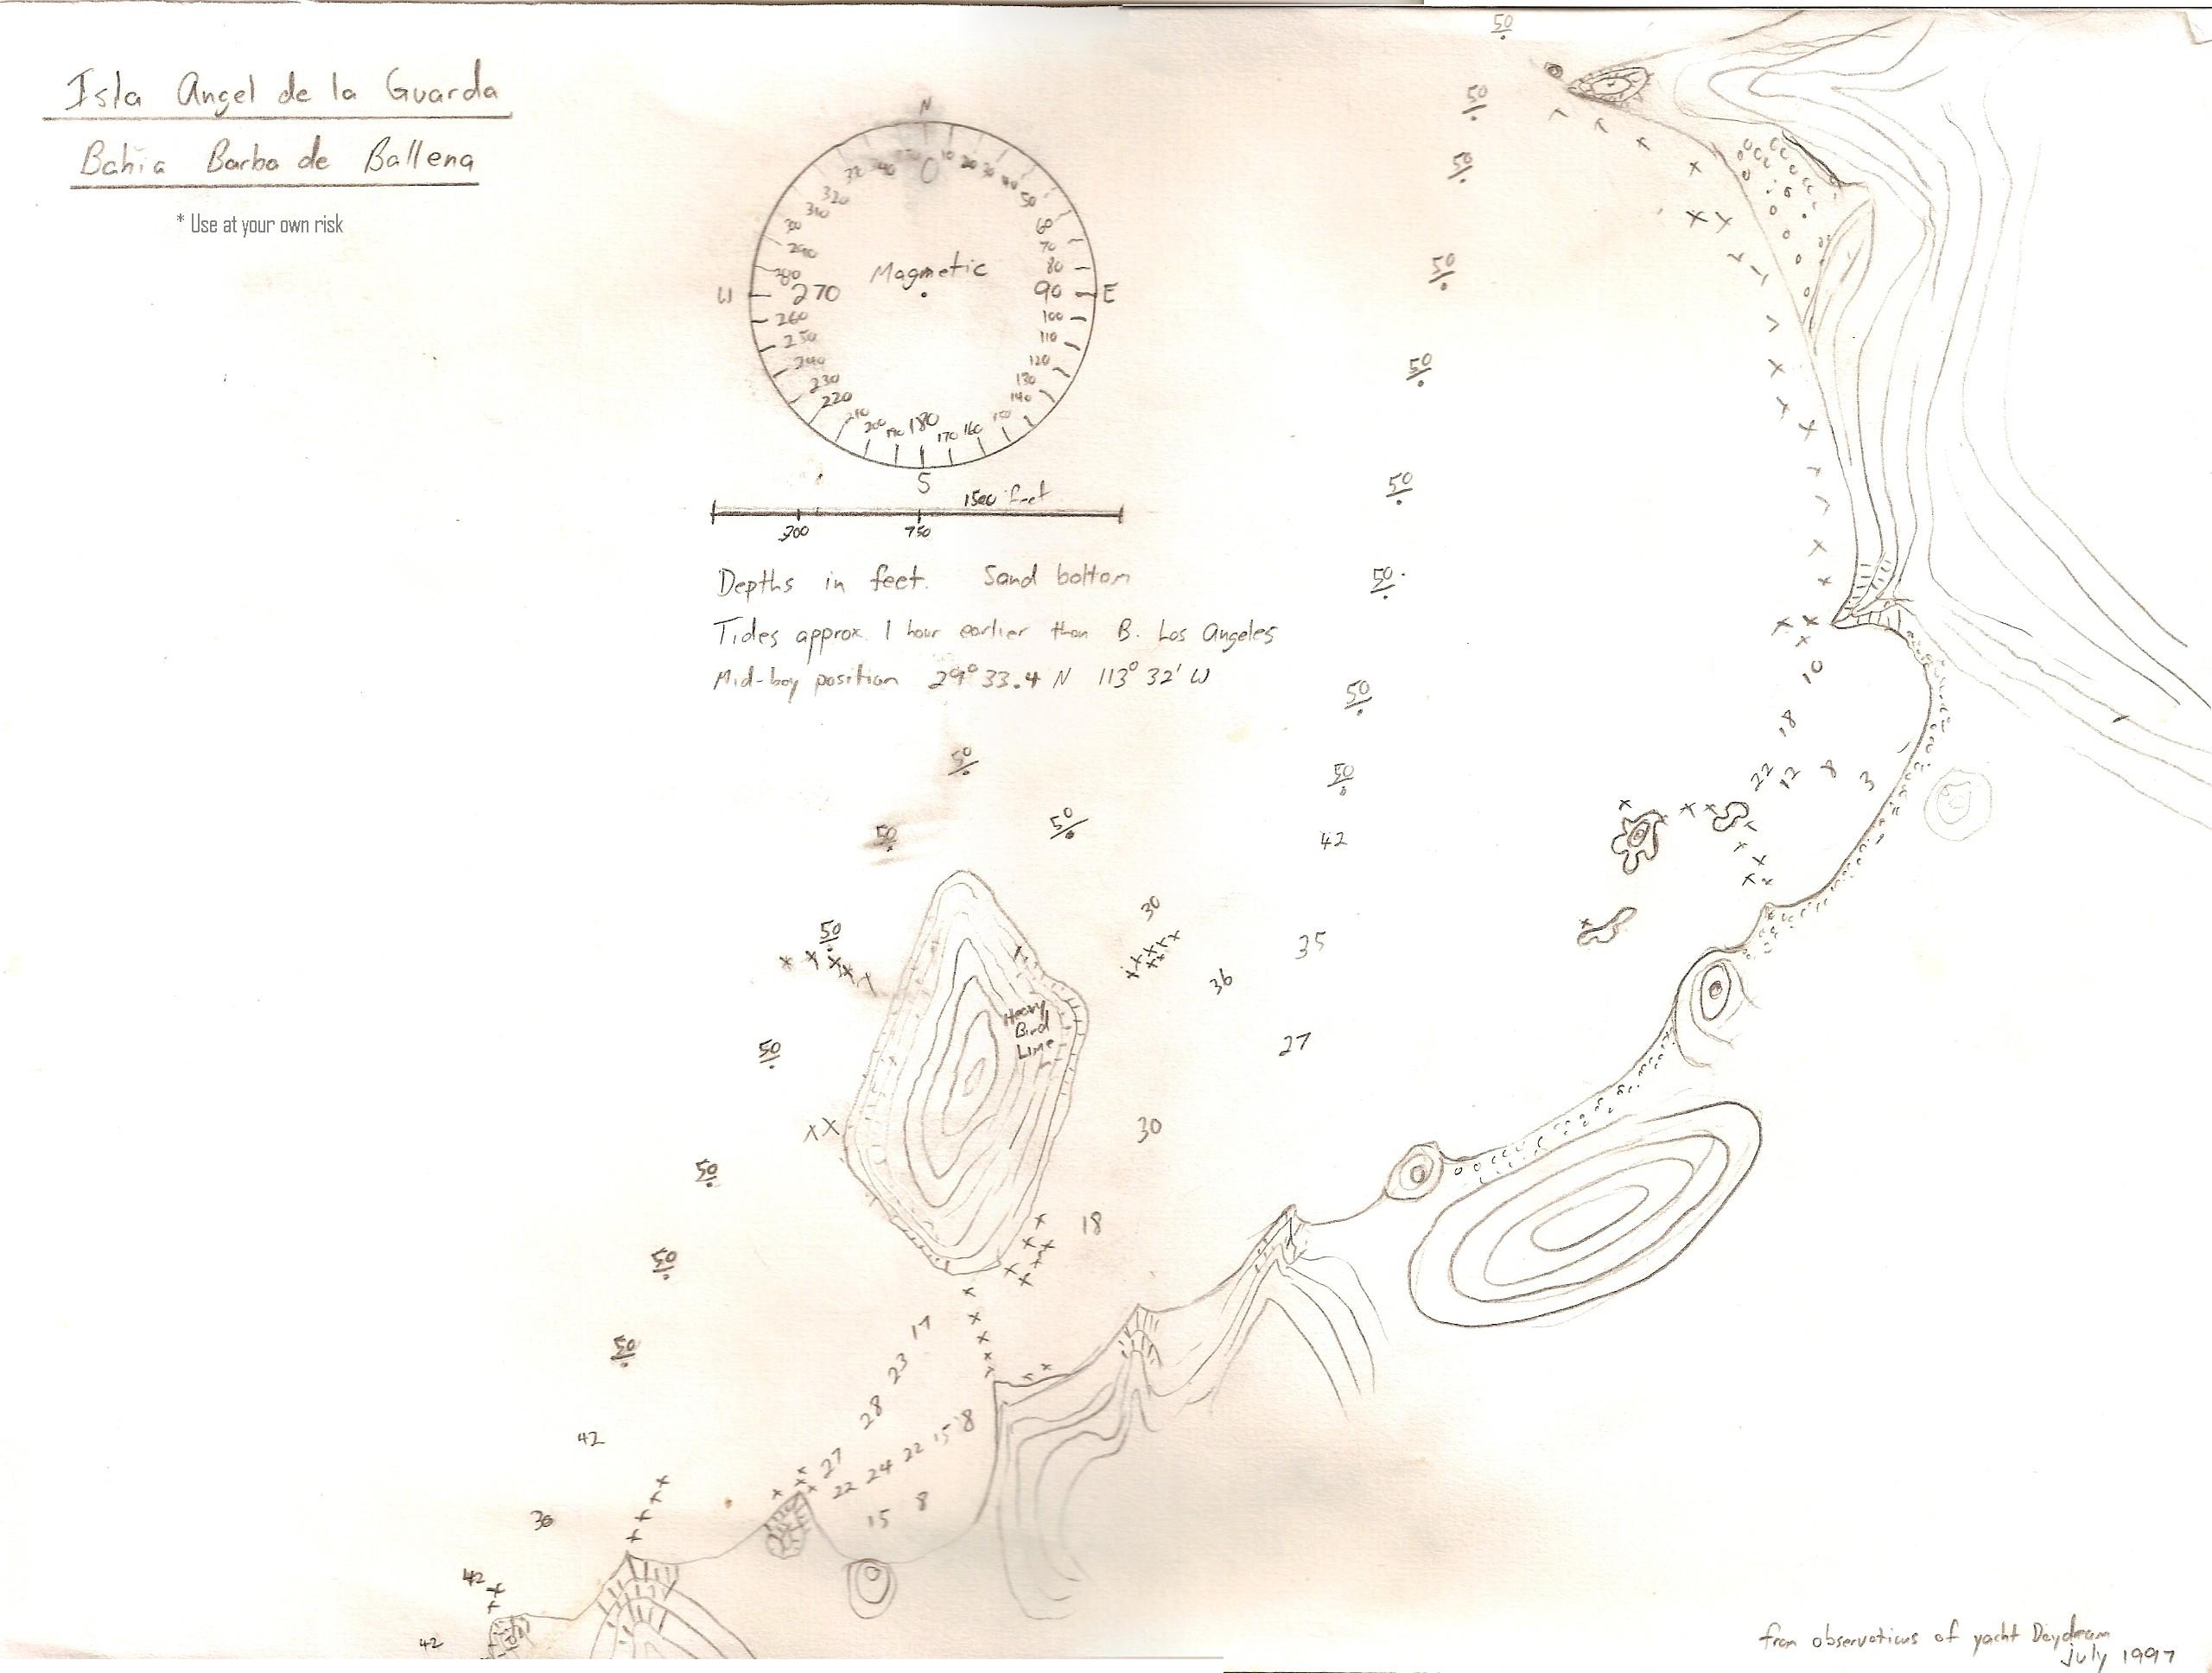 Isla Angel de la Guarda
Bahia Barba de Ballena
* Use at your own risk
N
0 10 20 30 40 50 60 70 80 90 100 110 120 130 140 150 160 170 180 190 200 210 220 230 240 250 260 270 280 290 300 310 320 330 340 350
Magmetic
W
E
S
1500 feet
300 750
Depths in feet. Sand bottom
Tides approx. 1 hour earlier than B. Los Angeles
Mid-bay position 29° 33.4 N 113° 32' W
50
50
50
50
50
50
50
50
50
42
35
36
27
30
30
18
50
50
50
50
50
50
50
50
42
36
42
42
10
18
22 12 8 3
Heavy
Bird
Lime
17
23
28
27
22 24 22 15 8
15 8
from observations of yacht Daydream
July 1997